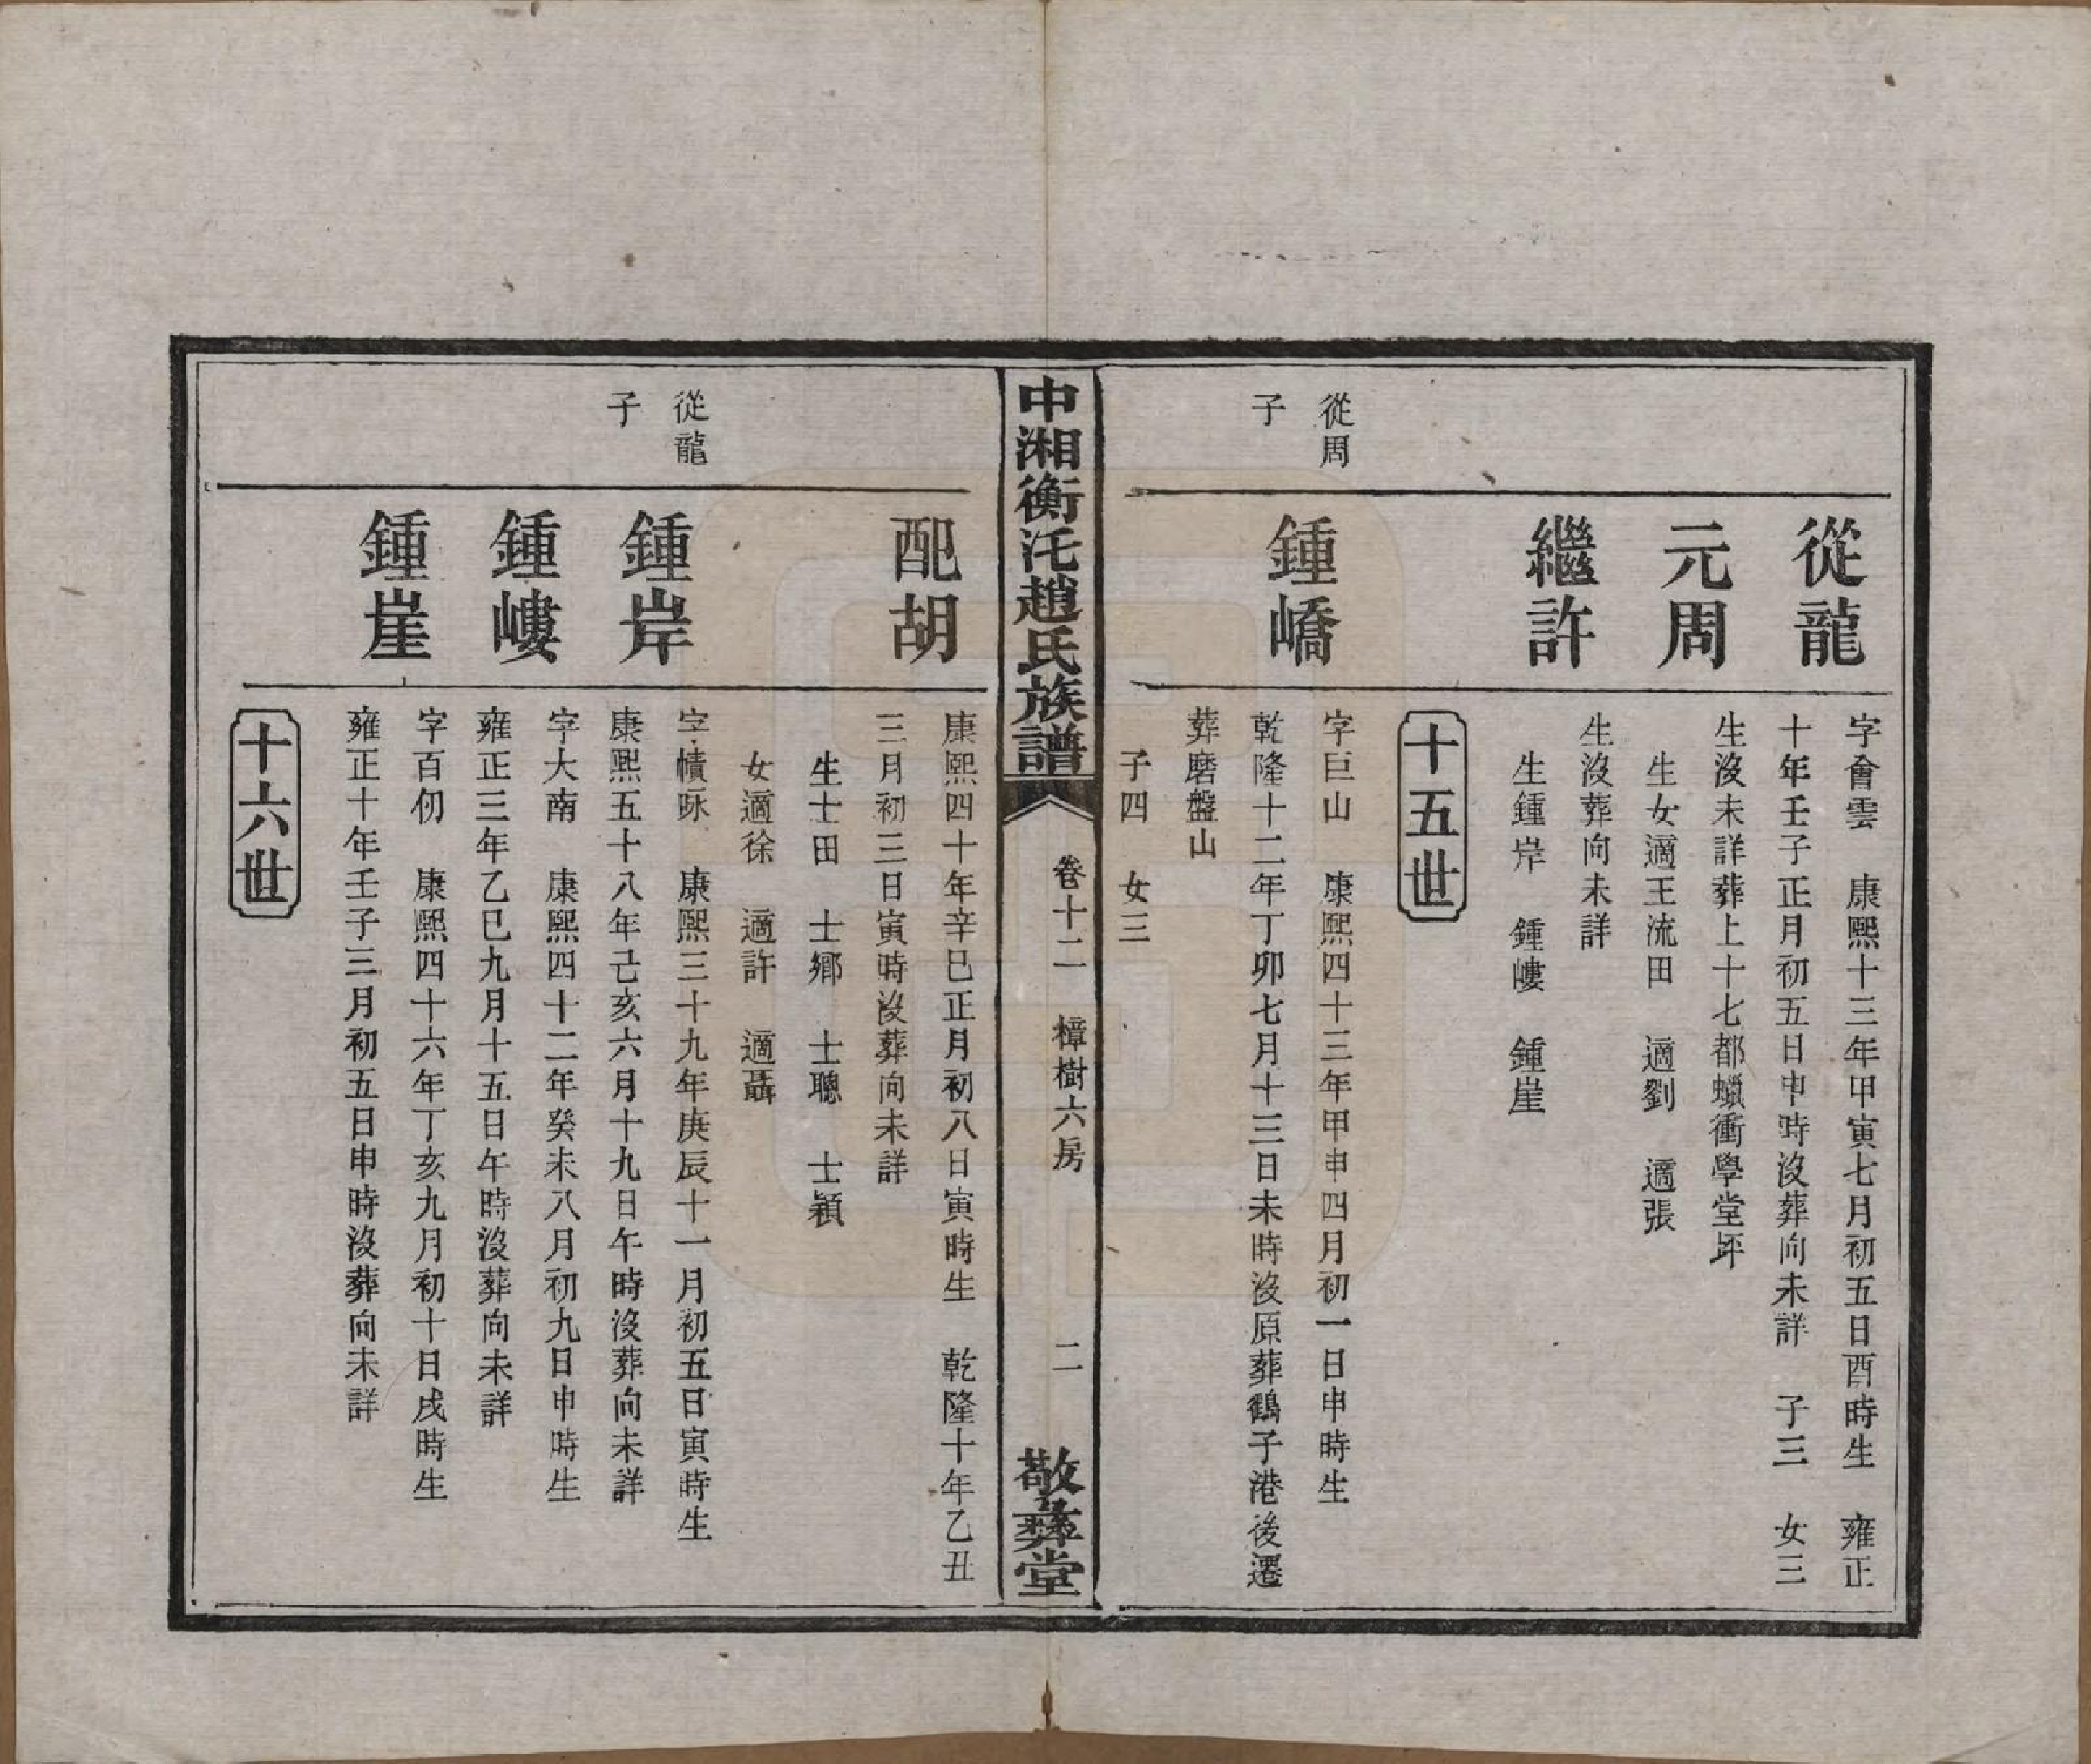 從龍
字會雲　康熙十三年甲寅七月初五日酉時生　雍正
十年壬子正月初五日申時沒葬向未詳　子三　女三
元周
生沒未詳葬上十七都蠟衝學堂坪
生女適王流田　適劉　適張
繼許
生沒葬向未詳
生鍾岸　鍾嶁　鍾崖
十五世
從周
子
鍾嶠
字巨山　康熙四十三年甲申四月初一日申時生
乾隆十二年丁卯七月十三日未時沒原葬鶴子港後遷
葬磨盤山
子四　女三
中湘衡汑趙氏族譜
卷十二　樟樹六房
二
敬彝堂
配胡
康熙四十年辛巳正月初八日寅時生　乾隆十年乙丑
三月初三日寅時沒葬向未詳
生士田　士鄉　士聰　士穎
女適徐　適許　適聶
從龍
子
鍾岸
字幘　康熙三十九年庚辰十一月初五日寅時生
康熙五十八年己亥六月十九日午時沒葬向未詳
鍾嶁
字大南　康熙四十二年癸未八月初九日申時生
雍正三年乙巳九月十五日午時沒葬向未詳
鍾崖
字百仞　康熙四十六年丁亥九月初十日戌時生
雍正十年壬子三月初五日申時沒葬向未詳
十六世